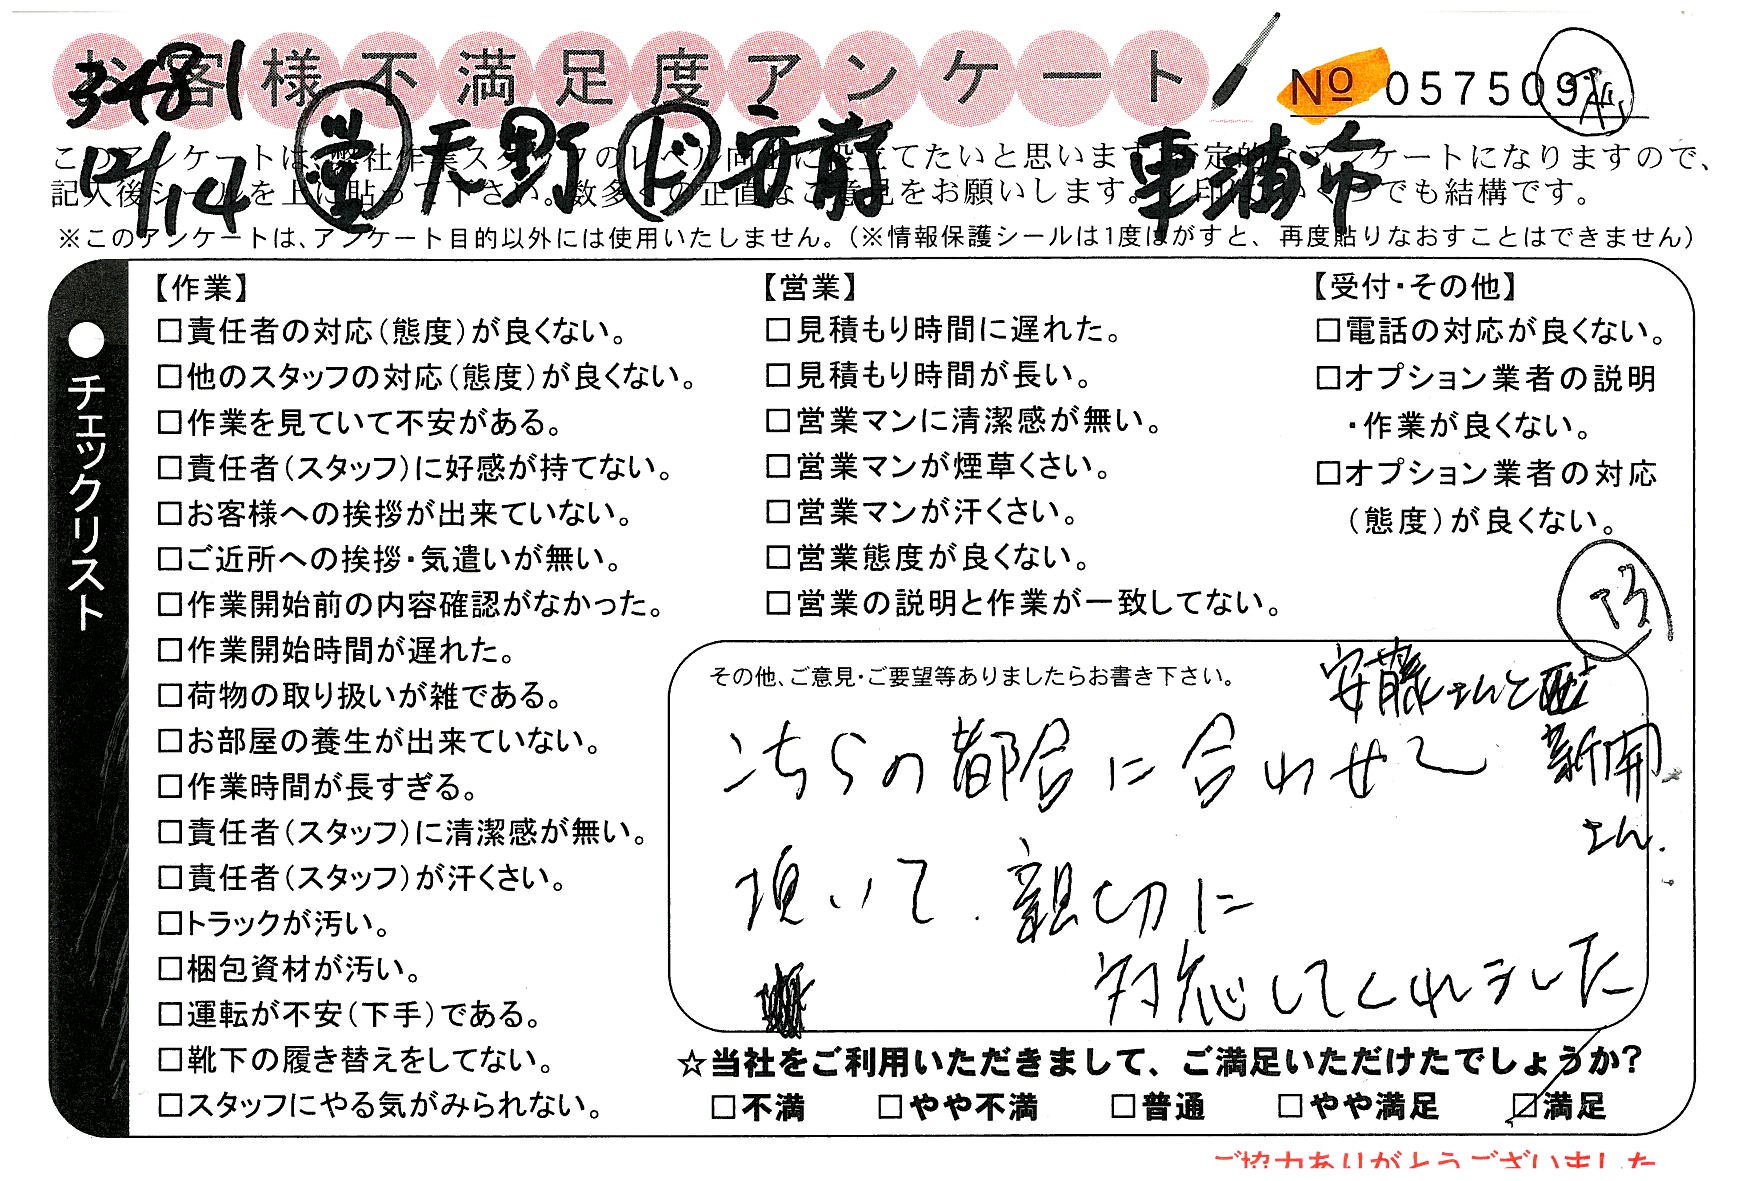 お客様不満足度アンケート
3481
№ 057509
12/14 営 天野 ド 西前 東浦市
このアンケートは、弊社作業スタッフのレベル向上に役立てたいと思います。否定的なアンケートになりますので、
記入後シールを上に貼って下さい。数多くの正直なご意見をお願いします。レ印はいくつでも結構です。
※このアンケートは、アンケート目的以外には使用いたしません。（※情報保護シールは1度はがすと、再度貼りなおすことはできません）
●チェックリスト
【作業】
□責任者の対応（態度）が良くない。
□他のスタッフの対応（態度）が良くない。
□作業を見ていて不安がある。
□責任者（スタッフ）に好感が持てない。
□お客様への挨拶が出来ていない。
□ご近所への挨拶・気遣いが無い。
□作業開始前の内容確認がなかった。
□作業開始時間が遅れた。
□荷物の取り扱いが雑である。
□お部屋の養生が出来ていない。
□作業時間が長すぎる。
□責任者（スタッフ）に清潔感が無い。
□責任者（スタッフ）が汗くさい。
□トラックが汚い。
□梱包資材が汚い。
□運転が不安（下手）である。
□靴下の履き替えをしてない。
□スタッフにやる気がみられない。
【営業】
□見積もり時間に遅れた。
□見積もり時間が長い。
□営業マンに清潔感が無い。
□営業マンが煙草くさい。
□営業マンが汗くさい。
□営業態度が良くない。
□営業の説明と作業が一致してない。
【受付・その他】
□電話の対応が良くない。
□オプション業者の説明
・作業が良くない。
□オプション業者の対応
（態度）が良くない。
その他、ご意見・ご要望等ありましたらお書き下さい。
安藤さんと
新開
さん.
こちらの都合に合わせて
頂いて、親切に
対応してくれました
☆当社をご利用いただきまして、ご満足いただけたでしょうか?
□不満 □やや不満 □普通 □やや満足 ☑満足
ご協力ありがとうございました